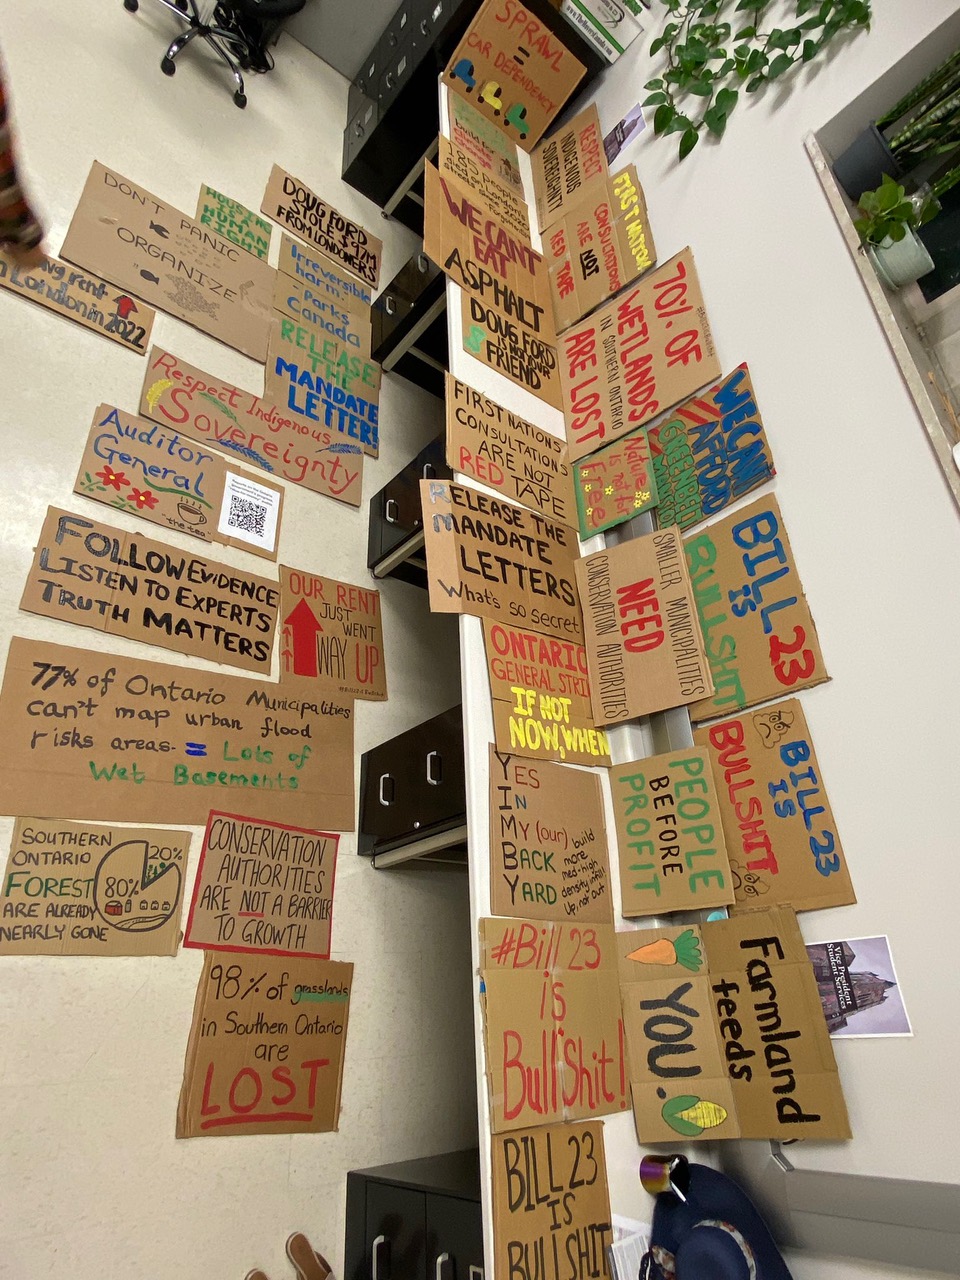 SPRAWL
=
CAR DEPENDENCY
RESPECT
INDIGENOUS
SOVEREIGNTY
185 people
WE CAN'T
EAT
ASPHALT
FIRST NATIONS
CONSULTATIONS
ARE NOT
RED TAPE
DOUG FORD
IS NOT OUR
FRIEND
70% OF
WETLANDS
IN SOUTHERN ONTARIO
ARE LOST
DOUG FORD
STOLE $97M
FROM LONDONERS
HOUSING
IS A
HUMAN
RIGHT
DON'T PANIC
ORGANIZE
Irreversible
harm:
Parks
Canada
RELEASE
THE
MANDATE
LETTER!
rent
London in 2022
Respect Indigenous
Sovereignty
Auditor
General
"the tea"
FIRST NATIONS
CONSULTATIONS
ARE NOT
RED TAPE
Nature
is not for
Free
WE CAN'T
AFFORD
RELEASE THE
MANDATE
LETTERS
What's so secret
FOLLOW EVIDENCE
LISTEN TO EXPERTS
TRUTH MATTERS
OUR RENT
JUST
WENT
WAY UP
SMALLER MUNICIPALITIES
NEED
CONSERVATION AUTHORITIES
BILL 23
IS
BULLSHIT
ONTARIO
GENERAL STRI
IF NOT
NOW, WHEN
77% of Ontario Municipalities
can't map urban flood
risks areas- = Lots of
Wet Basements
YES
IN
MY (our)
BACK
YARD
build
more
med-high
density infill
Up, not out
PEOPLE
BEFORE
PROFIT
BILL 23
IS
BULLSHIT
SOUTHERN
ONTARIO
FOREST
ARE ALREADY
NEARLY GONE
20%
80%
CONSERVATION
AUTHORITIES
ARE NOT A BARRIER
TO GROWTH
#Bill 23
is
Bull Shit!
Farmland
feeds
YOU.
Vice President
Student Services
98% of grasslands
in Southern Ontario
are
LOST
BILL 23
IS
BULLSHIT